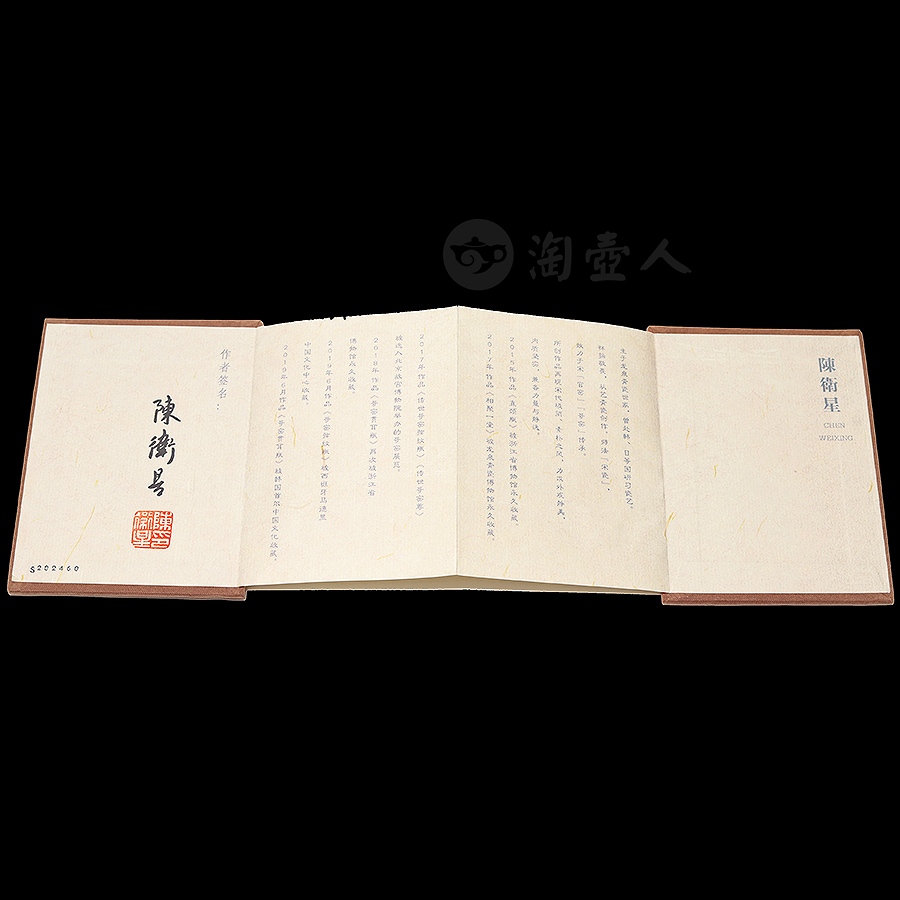 淘壶人
陳衛星
CHEN
WEIXING
生于龙泉青瓷世家,曾赴韩、日等国研习瓷艺。
林协敬亮,从艺青瓷创作,师法「宋瓷」,
致力于宋「官窑」「哥窑」传承。
所创作品再现宋代端润、素朴之风,力求外观静美,
内质莹密,兼备力量与舒逸。
2015年作品《直颈瓶》被浙江省博物馆永久收藏。
2017年作品《相聚一壶》被龙泉青瓷博物馆永久收藏。
2017年作品《传世哥窑弦纹瓶》《传世哥窑尊》
被选入北京故宫博物院举办的哥窑展览。
2018年作品《哥窑贯耳瓶》再次被浙江省
博物馆永久收藏。
2019年6月作品《哥窑弦纹瓶》被西班牙马德里
中国文化中心收藏。
2019年6月作品《哥窑贯耳瓶》被韩国首尔中国文化收藏。
作者签名:
陳衛星
陳衛星印
S202460